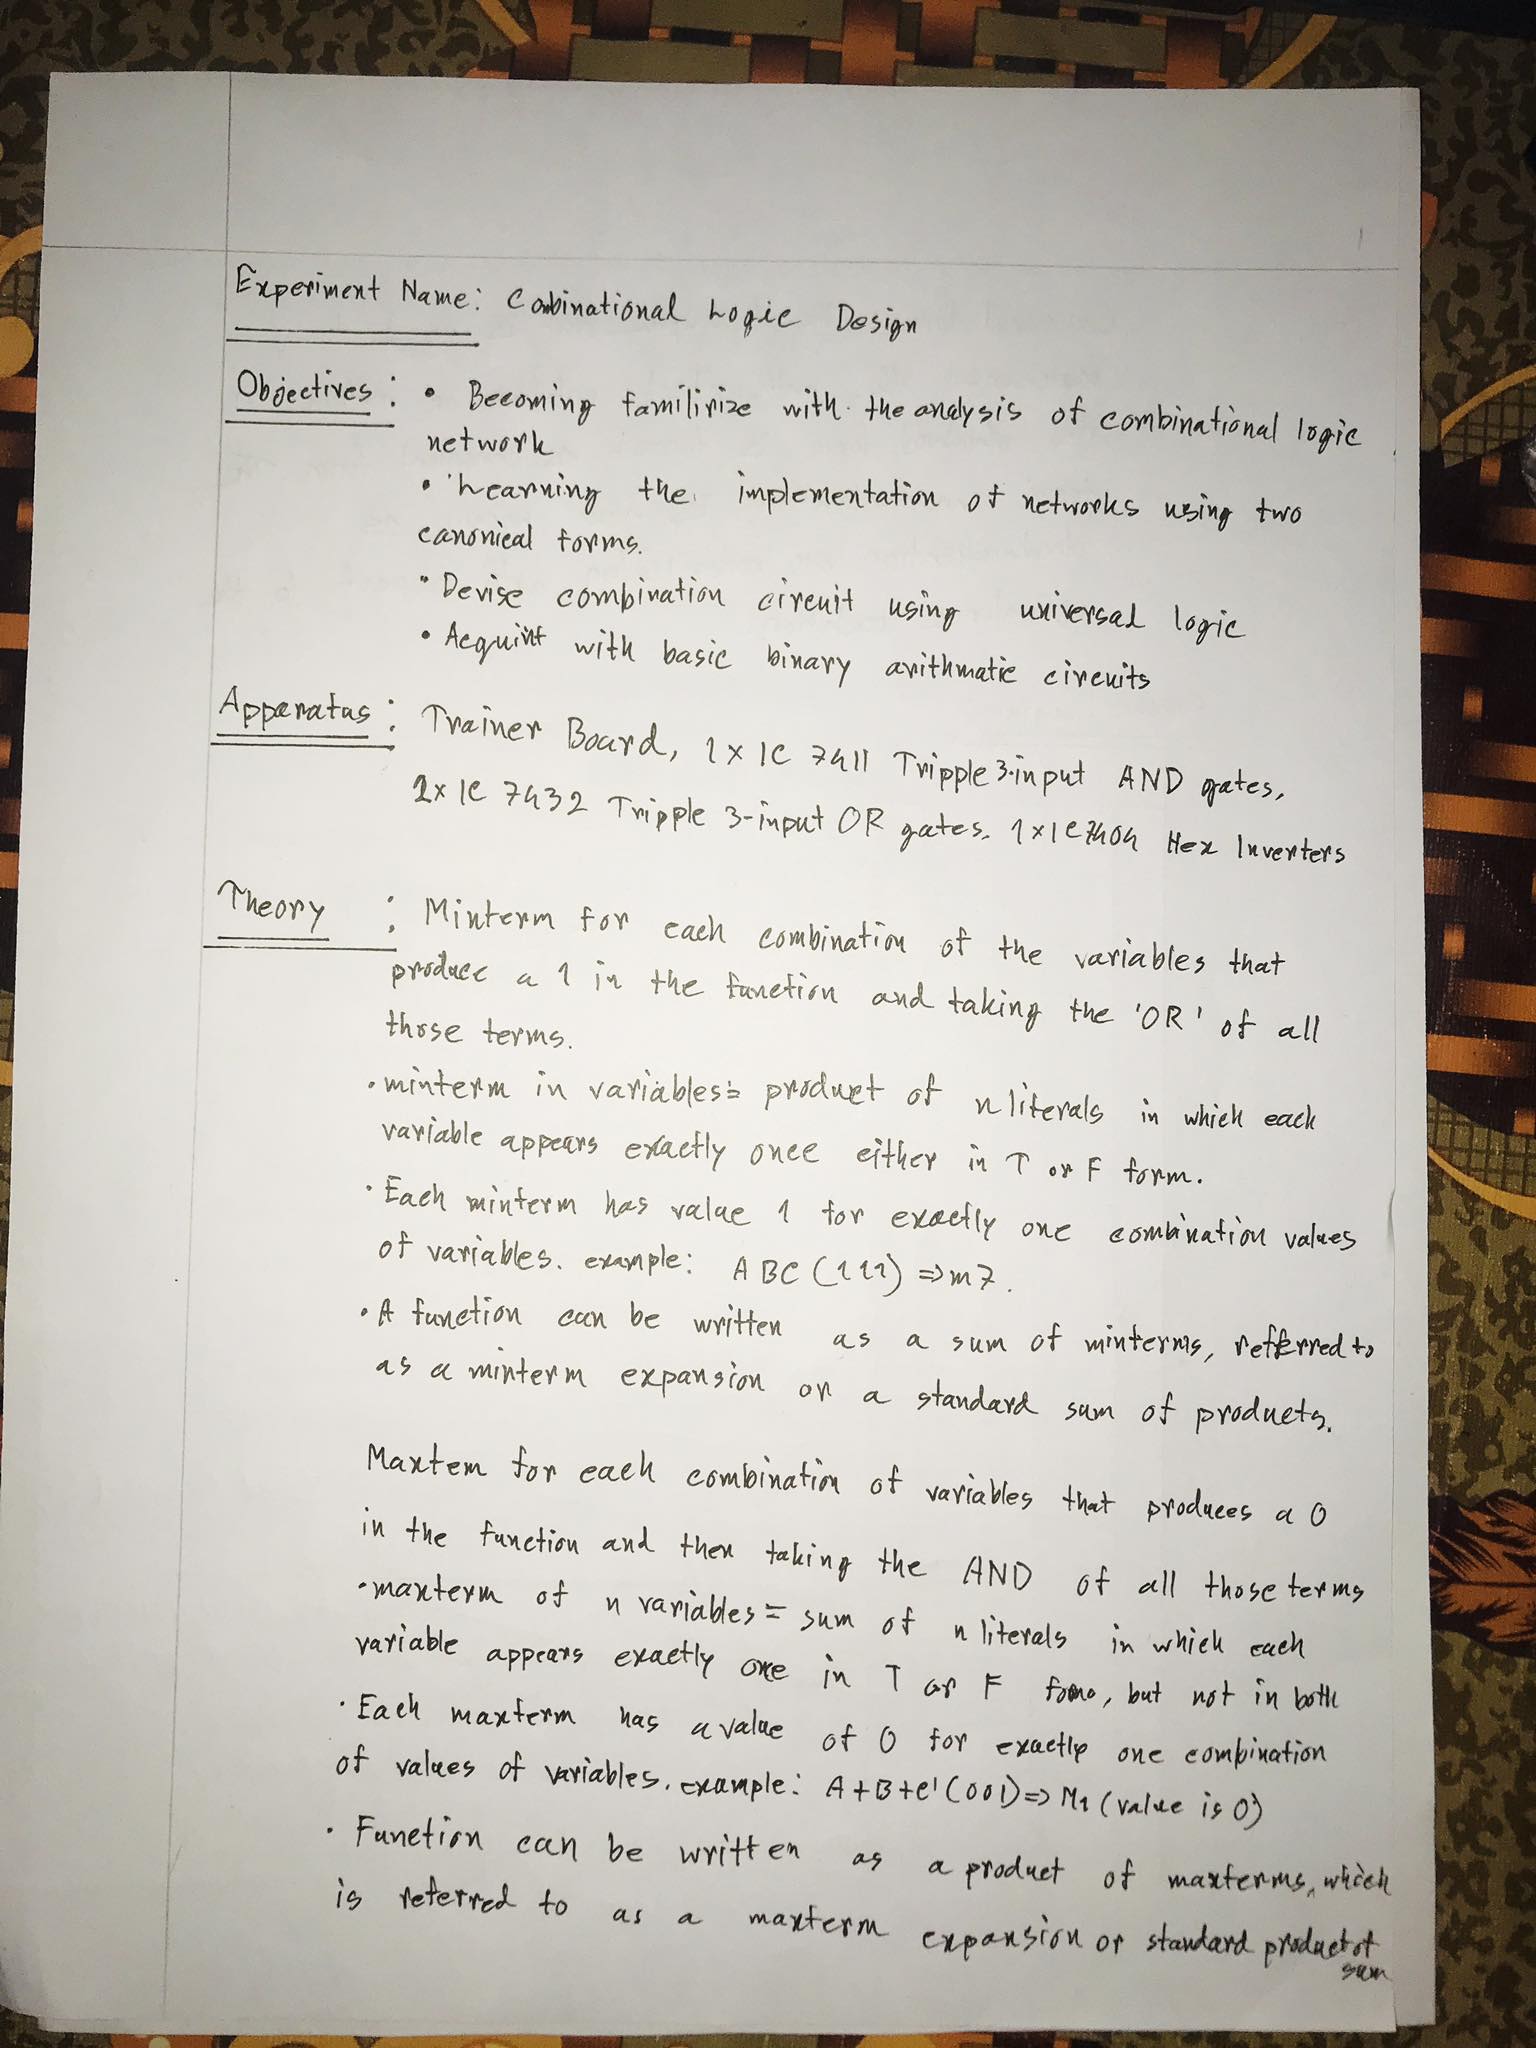 Experiment Name: Combinational Logic Design
Objectives : • Becoming familirize with the analysis of combinational logic
network
• Learning the implementation of networks using two
canonical forms.
• Devise combination circuit using universal logic
• Acquint with basic binary arithmatic circuits
Apparatus : Trainer Board, 1x IC 7411 Tripple 3-input AND gates,
2x IC 7432 Tripple 3-input OR gates. 1x IC7404 Hex Inverters
Theory : Minterm for each combination of the variables that
produce a 1 in the function and taking the 'OR' of all
those terms.
• minterm in variables= product of n literals in which each
variable appears exactly once either in T or F form.
• Each minterm has value 1 for exactly one combination values
of variables. example: ABC (111) => m7.
• A function can be written as a sum of minterms, refferred to
as a minterm expansion or a standard sum of products.
Maxtem for each combination of variables that produces a 0
in the function and then taking the AND of all those terms
• maxterm of n variables = sum of n literals in which each
variable appears exactly one in T or F form, but not in both
• Each maxterm has a value of 0 for exactly one combination
of values of variables. example: A+B+C' (001) => M1 (value is 0)
• Function can be written as a product of maxterms, which
is referred to as a maxterm expansion or standard product of
sum